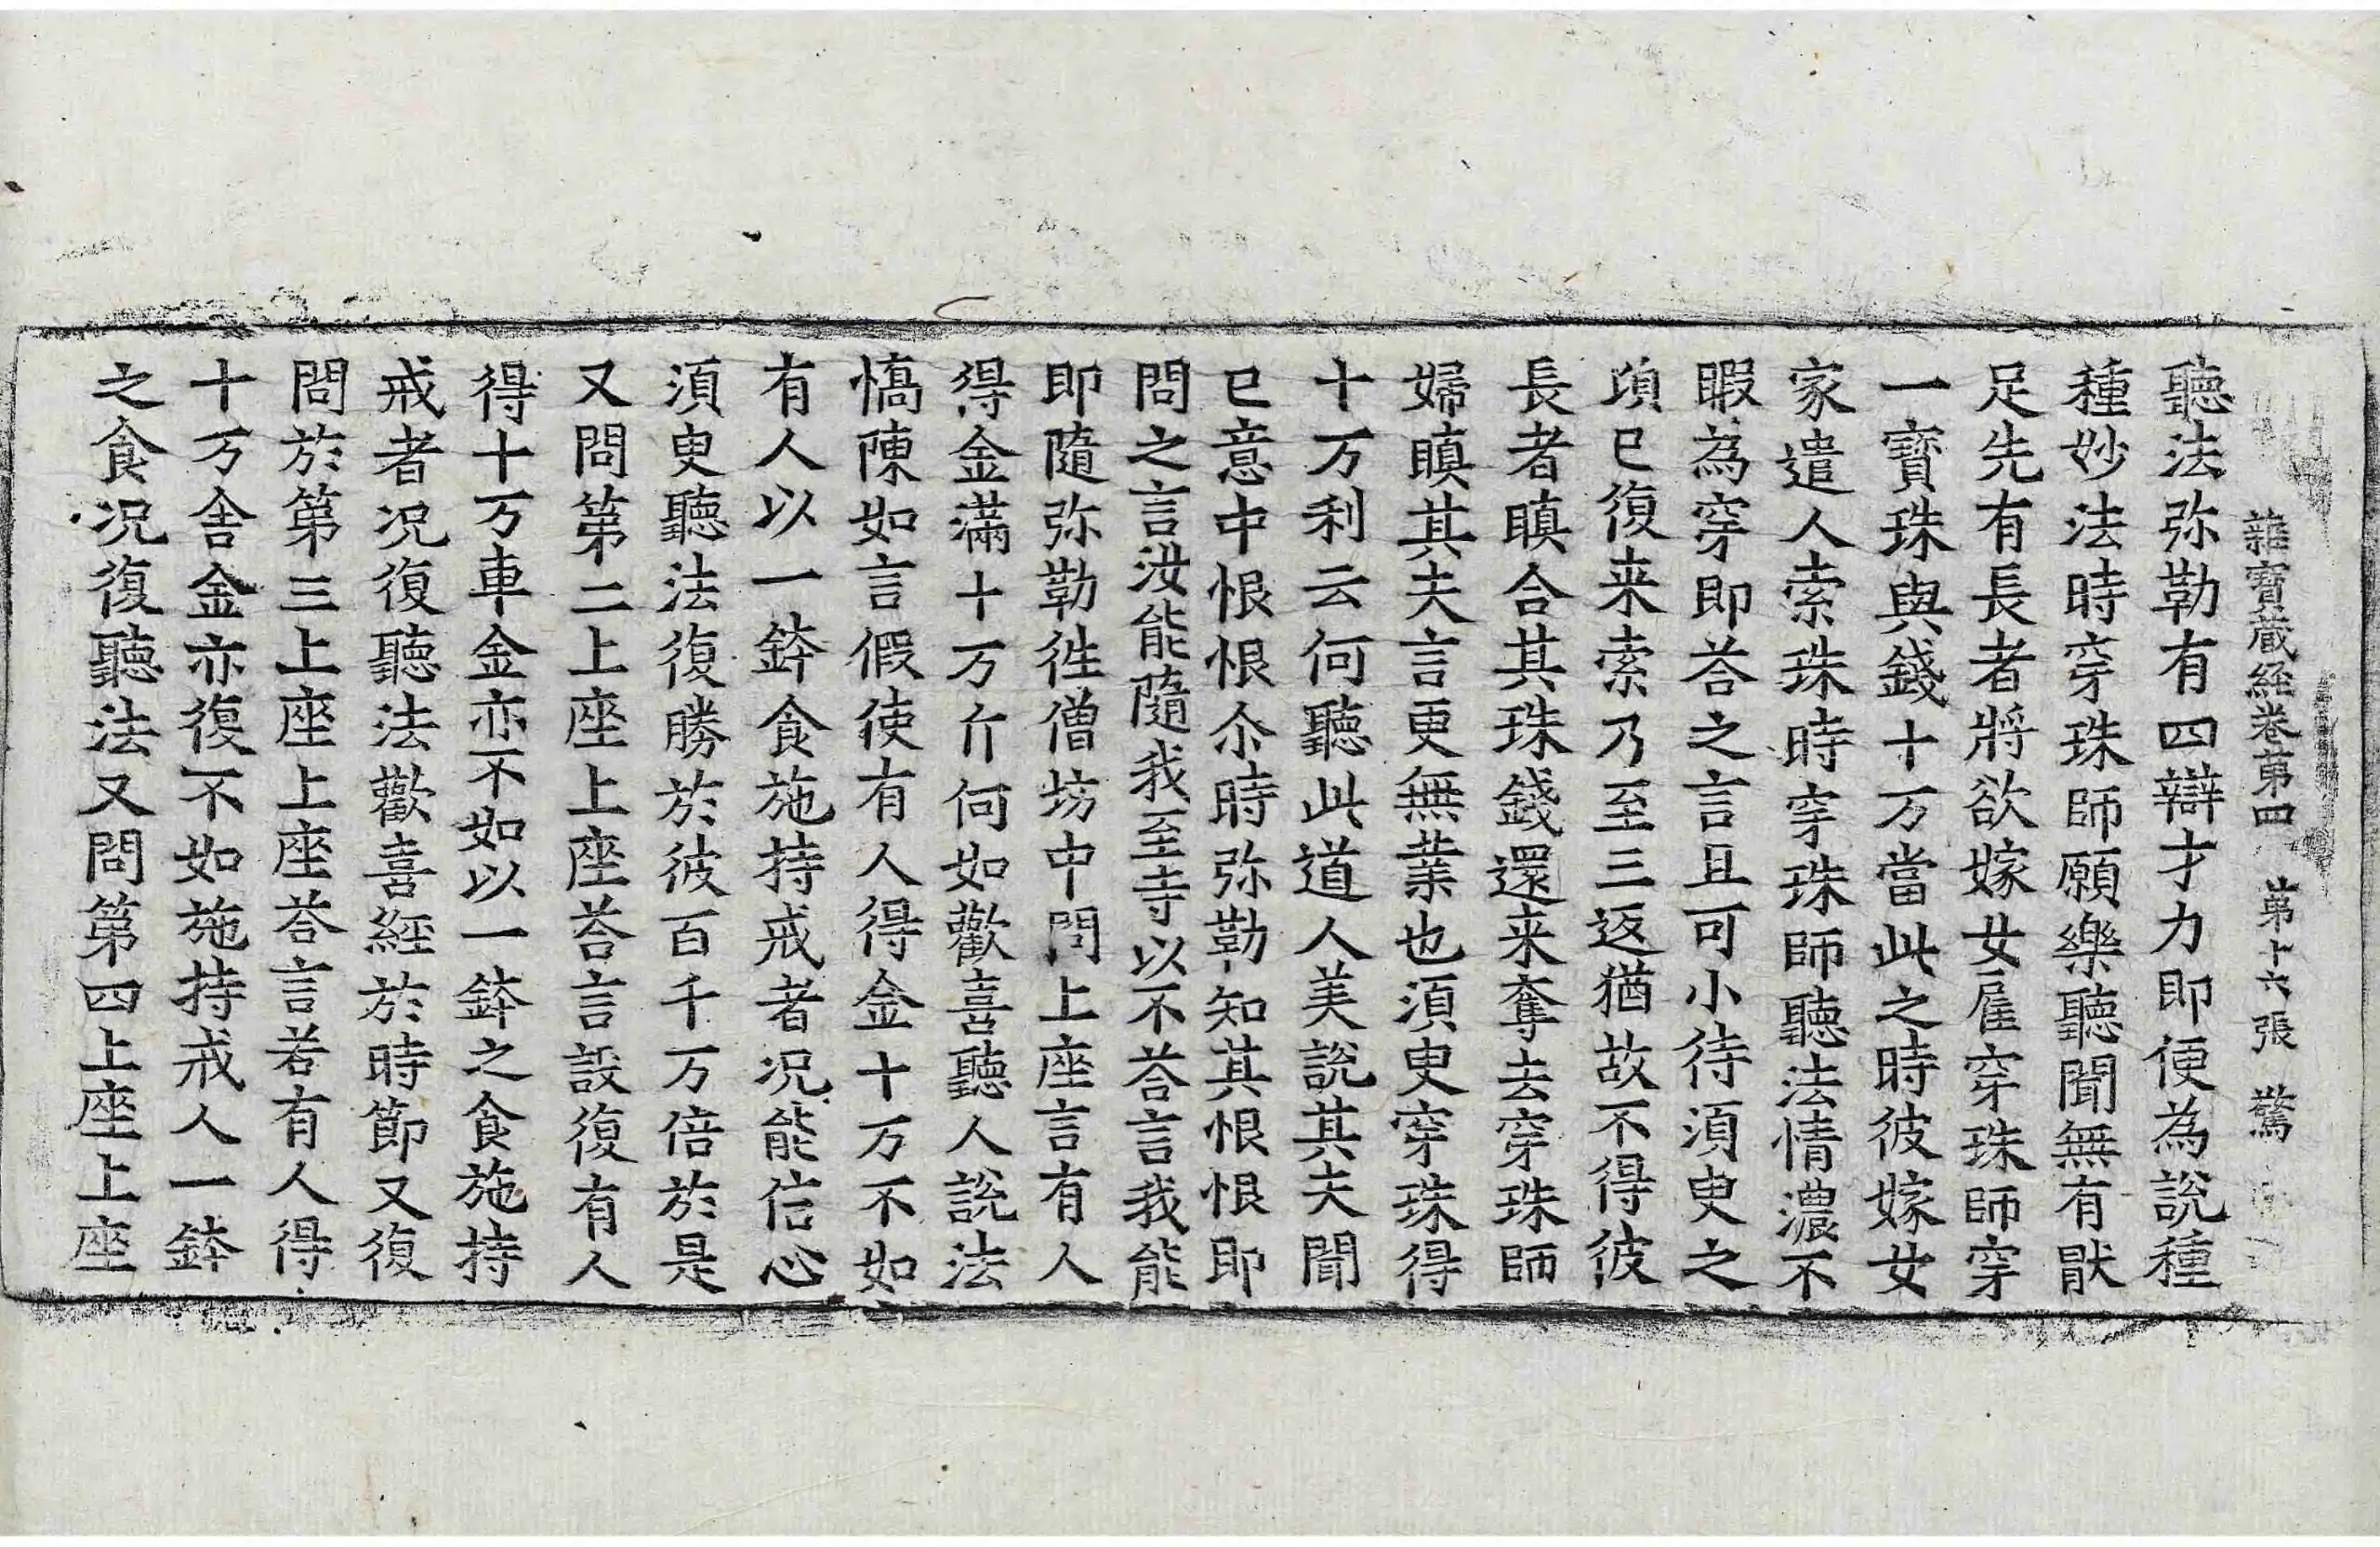 雜寶藏經卷第四 第十六張 驚
聽法弥勒有四辯才力即便為說種
種妙法時穿珠師願樂聽聞無有猒
足先有長者將欲嫁女雇穿珠師穿
一寶珠與錢十万當此之時彼嫁女
家遣人索珠時穿珠師聽法情濃不
暇為穿即荅之言且可小待須臾之
頃已復来索乃至三返猶故不得彼
長者瞋合其珠錢還来奪去穿珠師
婦瞋其夫言更無業也須臾穿珠得
十万利云何聽此道人美說其夫聞
已意中恨恨尒時弥勒知其恨恨即
問之言汝能隨我至寺以不荅言我能
即隨弥勒徃僧坊中問上座言有人
得金滿十万斤何如歡喜聽人說法
憍陳如言假使有人得金十万不如
有人以一鉢食施持戒者况能信心
須臾聽法復勝於彼百千万倍於是
又問第二上座上座荅言設復有人
得十万車金亦不如以一鉢之食施持
戒者况復聽法歡喜經於時節又復
問於第三上座上座荅言若有人得
十万舍金亦復不如施持戒人一鉢
之食况復聽法又問第四上座上座